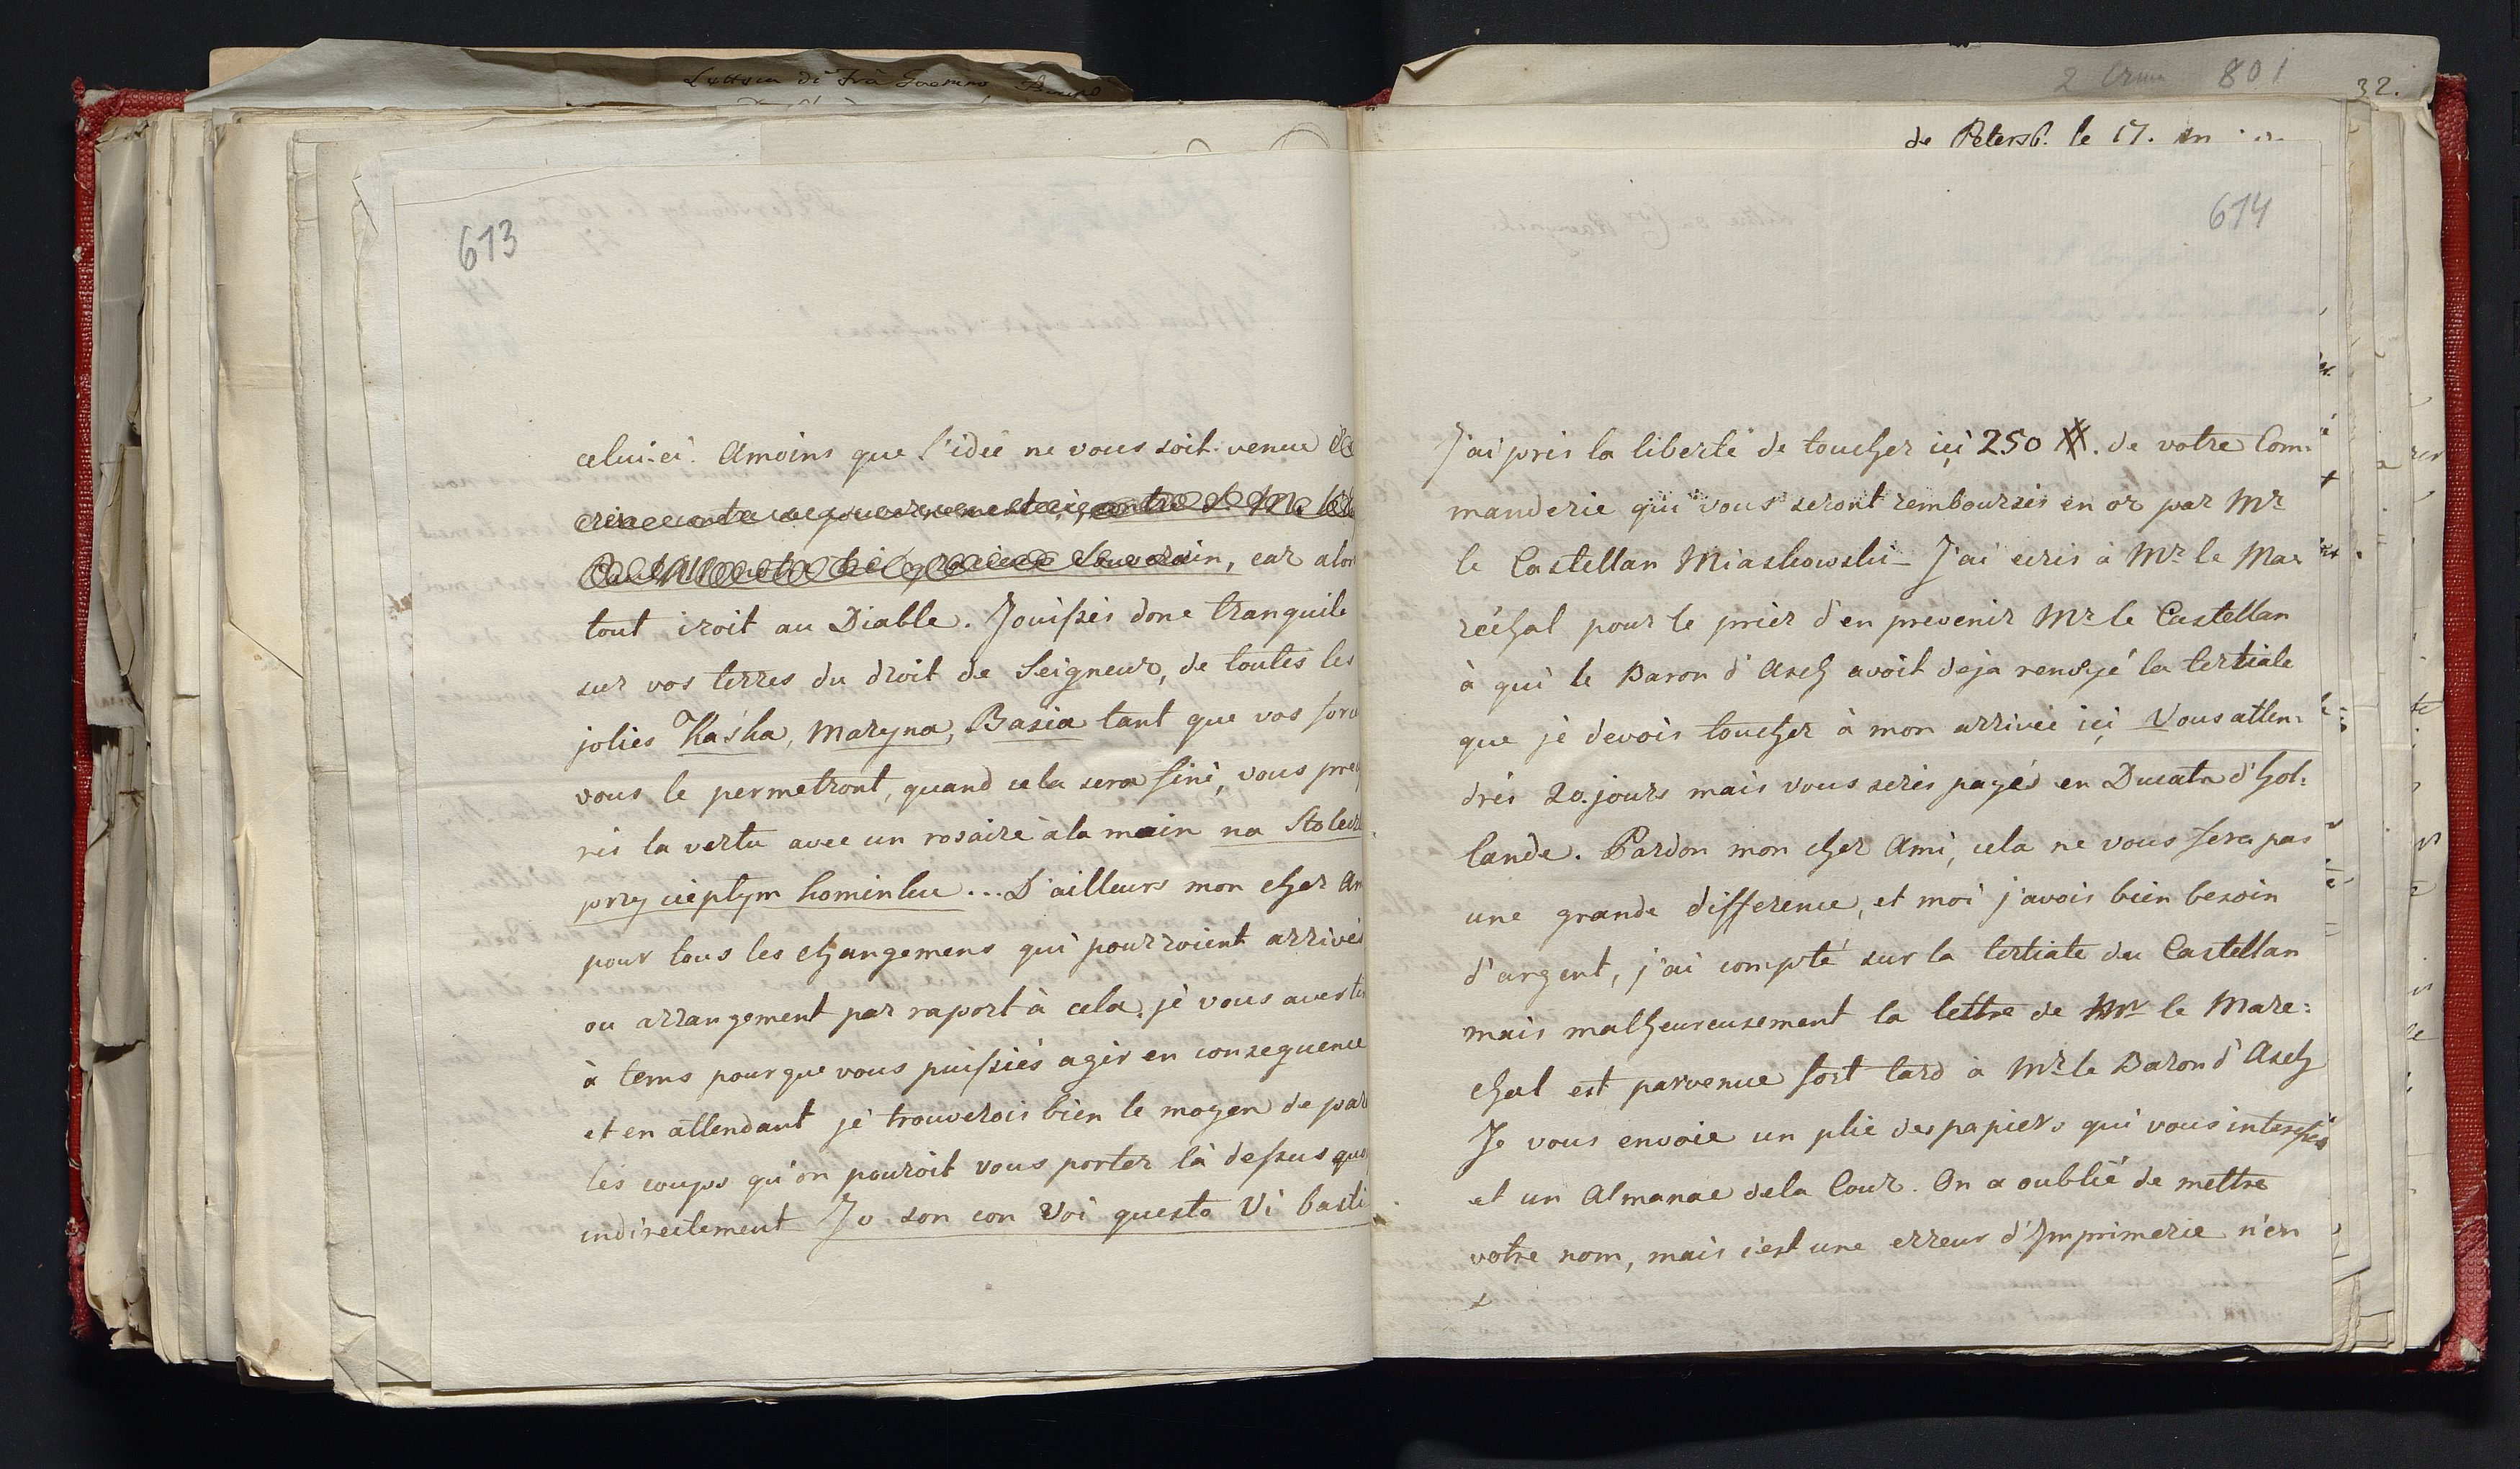 613
celui-ci. Amoins que l'idée ne vous soit venue
Souverain, car alor
tout iroit au Diable. Jouissés donc tranquile
sur vos terres du droit de Seigneur, de toutes les
jolies Kaśka, Maryna, Basia tant que vos forc
vous le permetront, quand cela sera fini, vous pre
rés la vertu avec un rosaire à la main na Stolecz
przy ciepłym kominku... D'ailleurs mon cher Am
pour tous les changemens qui pourroient arriver
ou arrangement par raport à cela, je vous averti
à tems pour que vous puissiés agir en consequence
et en attendant je trouverois bien le moyen de par
les coups qu'on pouroit vous porter là dessus quo
indirectement Jo son con Voi questo Vi basti
801
32.
de Petersb. le 17.
614
J'ai pris la liberté de toucher içi 250 ##. de votre Com:
manderie qui vous seront remboursés en or par Mr
le Castellan Miaskowski – J'ai ecris à Mr le Mar
réchal pour le prier d'en prevenir Mr le Castellan
à qui le Baron d'Asch avoit deja renvoyé la tertiale
que je devois toucher à mon arrivée içi Vous atten:
drés 20. jours mais vous serés payés en Ducats d'Hol:
lande. Pardon mon cher Ami, cela ne vous fera pas
une grande difference, et moi j'avois bien besoin
d'argent, j'ai compté sur la tertiale du Castellan
mais malheureusement la lettre de Mr le Mare:
chal est parvenue fort tard à Mr le Baron d'Asch
Je vous envoie un plié des papiers qui vous interesses
et un Almanac de la Cour. On a oublié de mettre
votre nom, mais c'est une erreur d'Imprimerie n'en